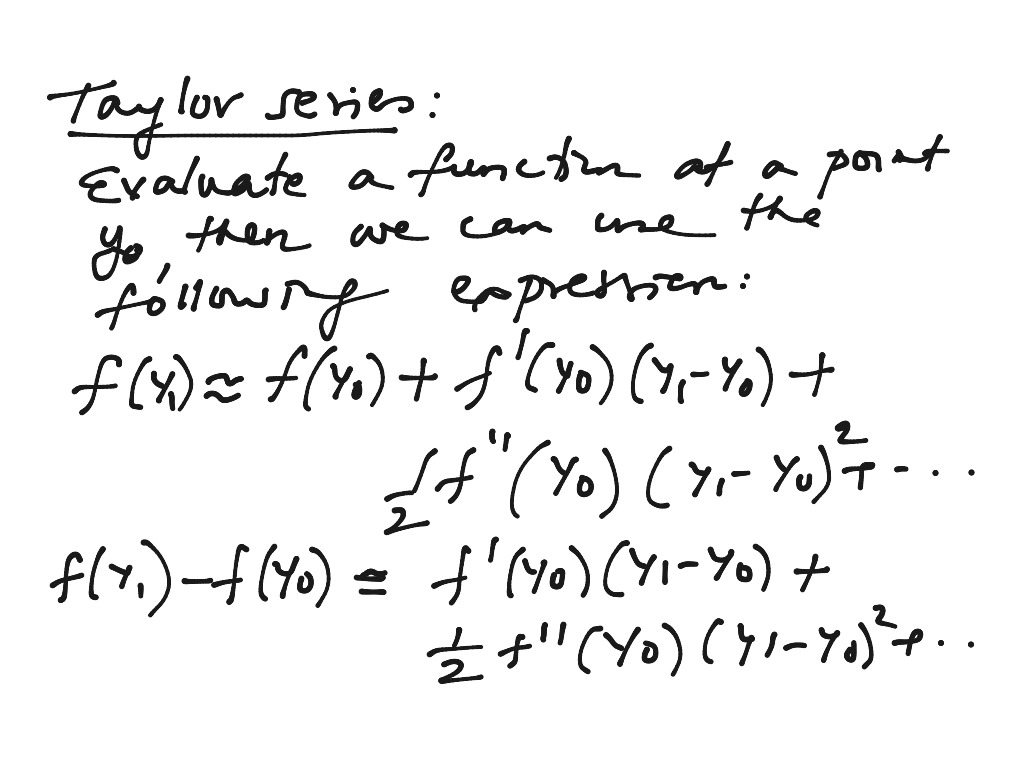 Taylor series:
Evaluate a function at a point
y₀, then we can use the
following expression:
f(y₁) ≈ f(y₀) + f'(y₀)(y₁-y₀) +
1/2 f''(y₀)(y₁-y₀)² + - · ·
f(y₁)-f(y₀) ≅ f'(y₀)(y₁-y₀) +
1/2 f''(y₀)(y₁-y₀)² + · ·